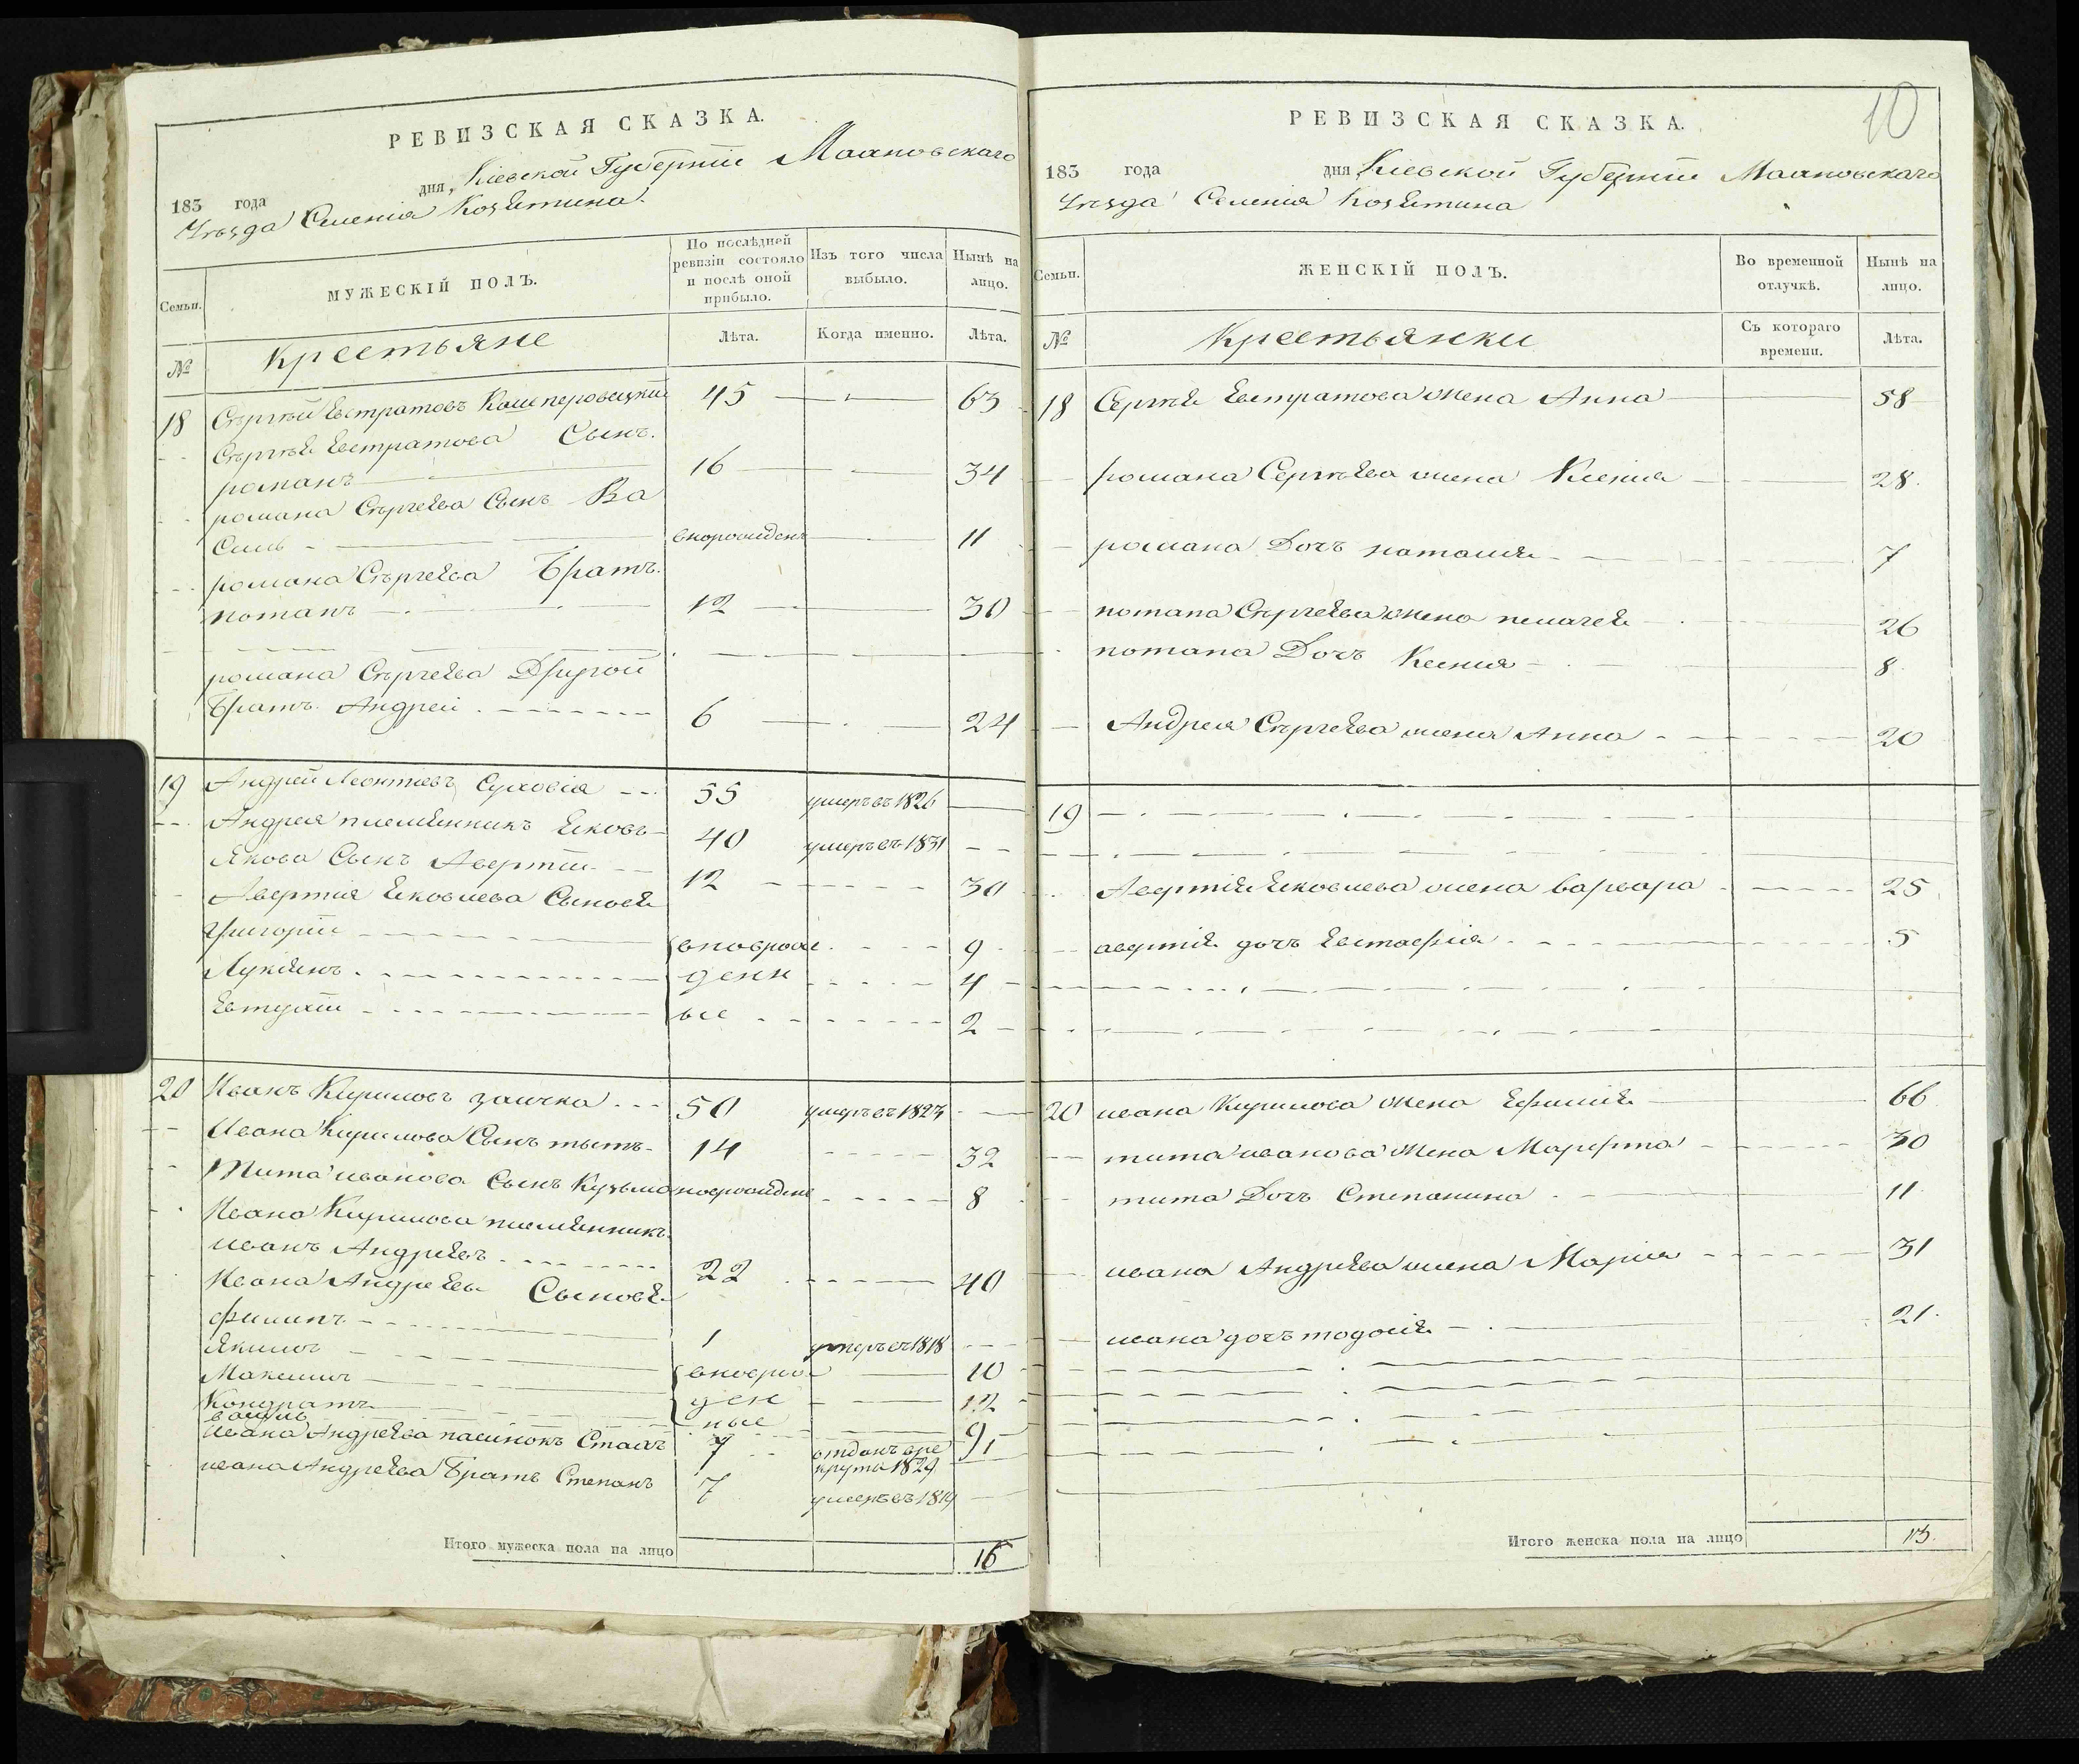 РЕВИЗСКАЯ СКАЗКА.
183 года дня, Кіевской Губерніи Махновскаго
Уѣзда Селенія Козятина.
Семьи.
МУЖЕСКІЙ ПОЛЪ.
По послѣдней ревизіи состояло и послѣ оной прибыло.
Изъ того числа выбыло.
Нынѣ на лицо.
№
Крестьяне
Лѣта.
Когда именно.
Лѣта.
18 Сѣргѣй Евстратовъ Кашперовецкій 45 63
Сѣргѣя Евстратова Сынъ.
романъ 16 34
романа Сѣргеева Сынъ Ва
силь 11
романа Сѣргеева Братъ.
потапъ 12 30
романа Сѣргеева Другой
Братъ Андрей 6 24
19 Андрей Леонтіевъ Суховія 55 умеръ въ 1826
Андрея племянникъ Яковъ 40 умеръ въ 1831
Якова Сынъ Авертій 12 30
Авертія Яковлева Сыновя
Григорій вноврож 9
Лукіянъ денн 4
Евтухій ые 2
20 Иванъ Кириловъ заичка 50 умеръ въ 1823
Ивана Кирилова Сынъ тытъ 14 32
Тита иванова Сынъ Кузьма новрожденъ 8
Ивана Кирилова племянникъ
иванъ Андреевъ 22 40
Ивана Андреева Сыновя
филипъ 1 умеръ въ 1818
Якимъ вноврож 10
Максимъ ден 12
Кондратъ ные 9
василь 1
Ивана Андреева пасинокъ 7 отданъ вре
круты 1829
ивана Андреева Братъ Степанъ 7 умеръ въ 1819
Итого мужеска пола на лицо 16
10
РЕВИЗСКАЯ СКАЗКА.
183 года дня Кіевской Губерніи Махновскаго
Уѣзда Селенія Козятина
Семьи.
ЖЕНСКІЙ ПОЛЪ.
Во временной отлучкѣ.
Нынѣ на лицо.
№
Крестьянки
Съ котораго времени.
Лѣта.
18 Сергѣя Евстратова жена Анна 58
романа Сергѣева жена Ксенія 28.
романа Дочъ наталія 7
потапа Сѣргеева жена пелагея 26
потапа Дочъ Ксенія 8
Андрея Сѣргеева жена Анна 20
19
Авертія Яковлева жена варвара 25
авертія дочъ Евстафія 5
20 ивана Кирилова жена Ефимія 66
тита иванова жена Марфта 30
тита Дочъ Степанина 11
ивана Андреева жена Марія 31
ивана дочъ тодосія 21.
Итого женска пола на лицо 13.